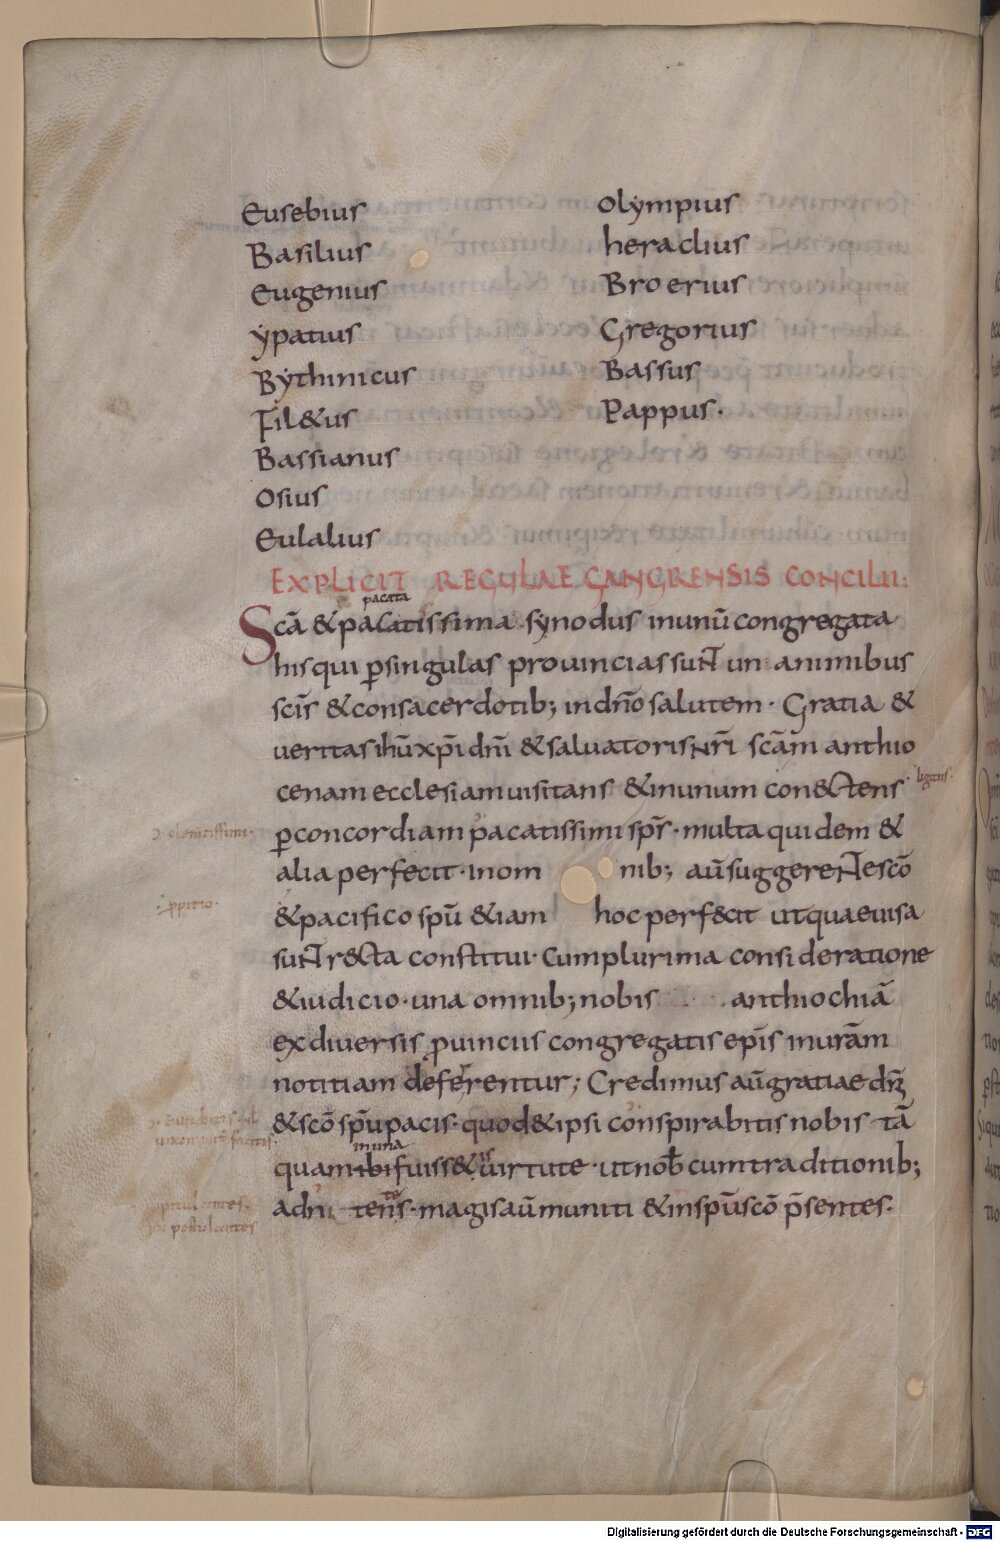 Eusebius
Basilius
Eugenius
ẏpatius
Bẏthinicus
Fil&us
Bassianus
Osius
Eulalius
Olẏmpius
heraclius
Broerius
Gregorius
Bassus
Pappus.
EXPLICIT REGULAE GANGRENSIS CONCILII:
pacata
Scā & pacatissima sẏnodus inunū congregata
his qui ꝑsingulas prouincias suNT un animibus
scīs & consacerdotib; indn̄o salutem · Gratia &
ueritas ihū xp̄i dn̄i & saluatoris nr̄i scām anthio
cenam ecclesiam uisitans & inunum con&ctens
ligans.
ꝑconcordiam pacatissimi sp̄s · multa quidem &
alia perfecit · inom nib; aū suggereNTescō
& pacifico spū & iam hoc perfecit utquae uisa
suNT r&cta constitui · Cumplurima consideratione
& iudicio · una omnib; nobis anthiochiā
exdiuersis ꝓuinciis congregatis ep̄is inurām
notitiam deferentur; Credimus aū gratiae dn̄i
& scō spū pacis · quod & ipsi conspirabitis nobis tā
inuna
quam ibi fuiss& uirtute · ut nob̄ cum traditionib;
adni tens · magis aū muniti & inspū scō p̄sentes.